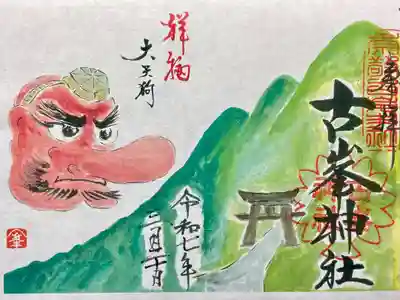 奉拝
古峯神社
令和七年
二月十日
祥福
大天狗
峯